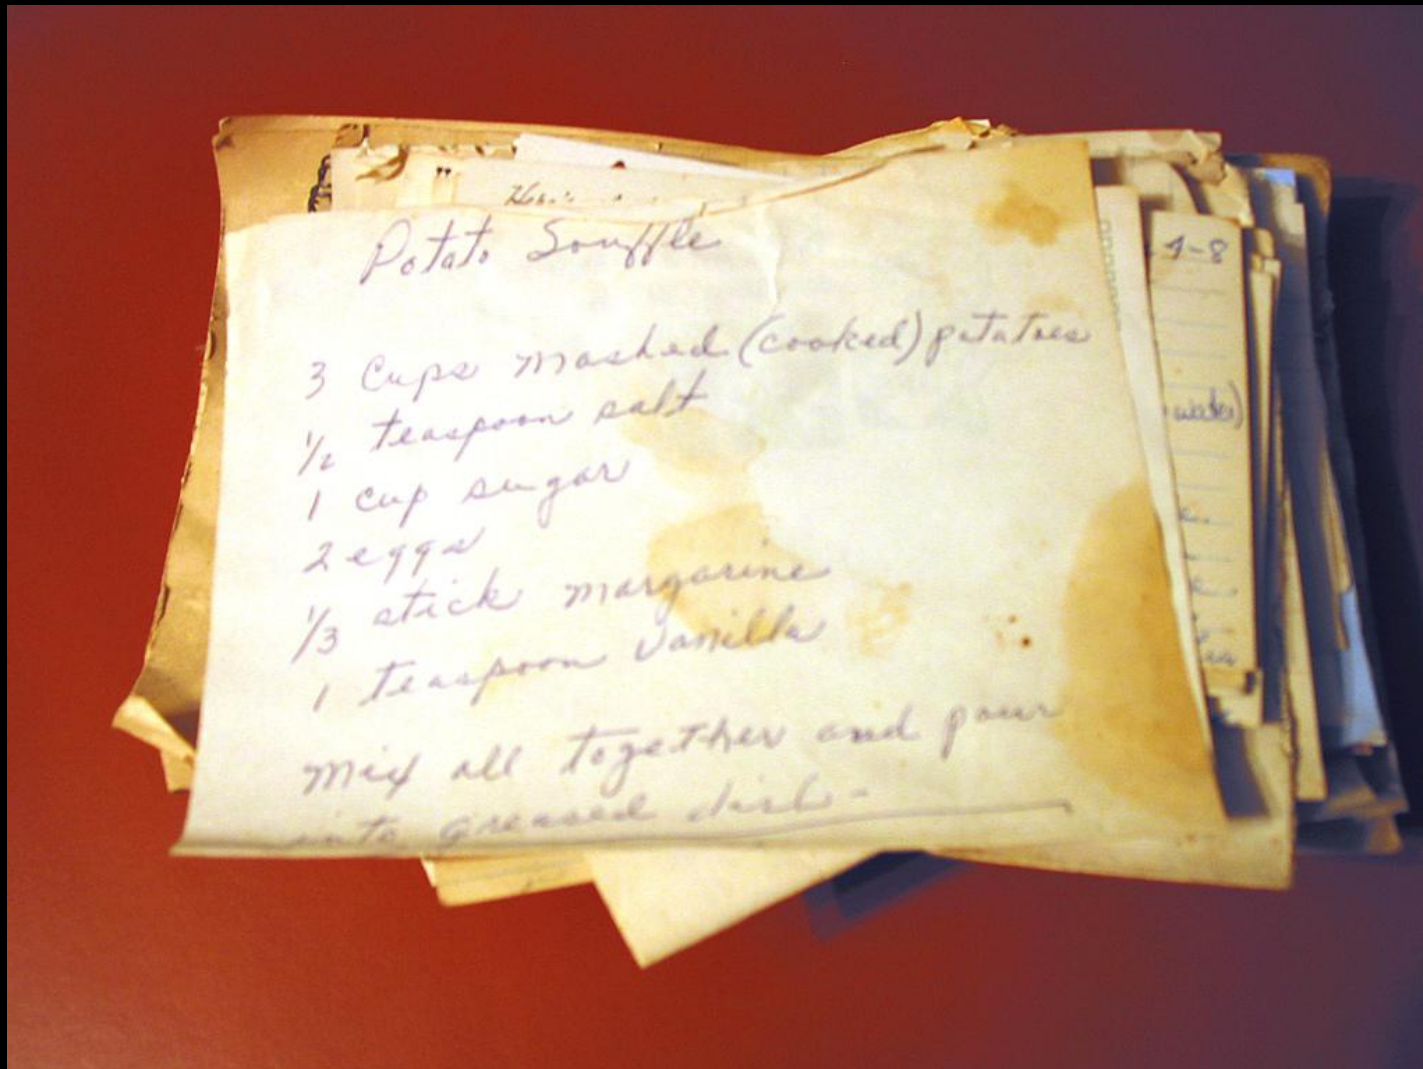 Potato Souffle
3 Cups mashed (cooked) potatoes
1/2 teaspoon salt
1 cup sugar
2 eggs
1/3 stick margarine
1 teaspoon vanilla
Mix all together and pour
into greased dish -
4-8
water)